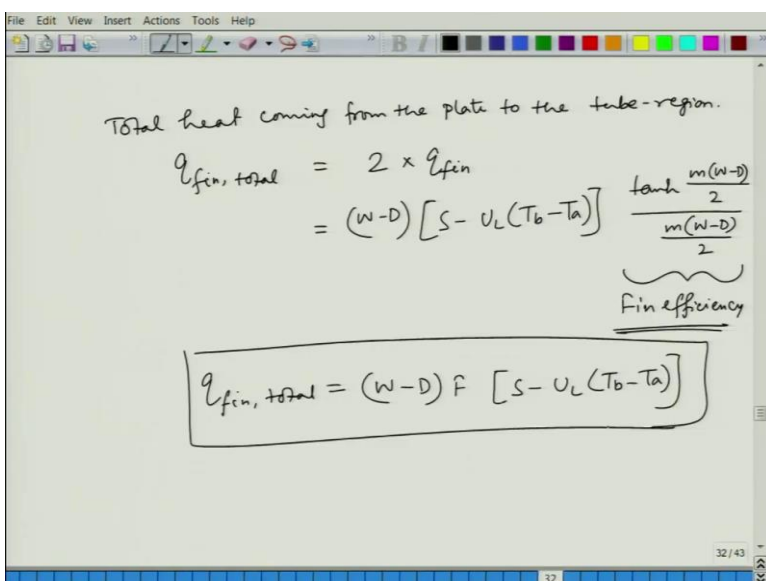 File Edit View Insert Actions Tools Help
Total heat coming from the plate to the tube-region.
q_fin, total = 2 × q_fin
= (W-D) [S - U_L (T_b - T_a)] tanh m(W-D)/2 / m(W-D)/2
Fin efficiency
q_fin, total = (W-D) F [S - U_L (T_b - T_a)]
32/43
32